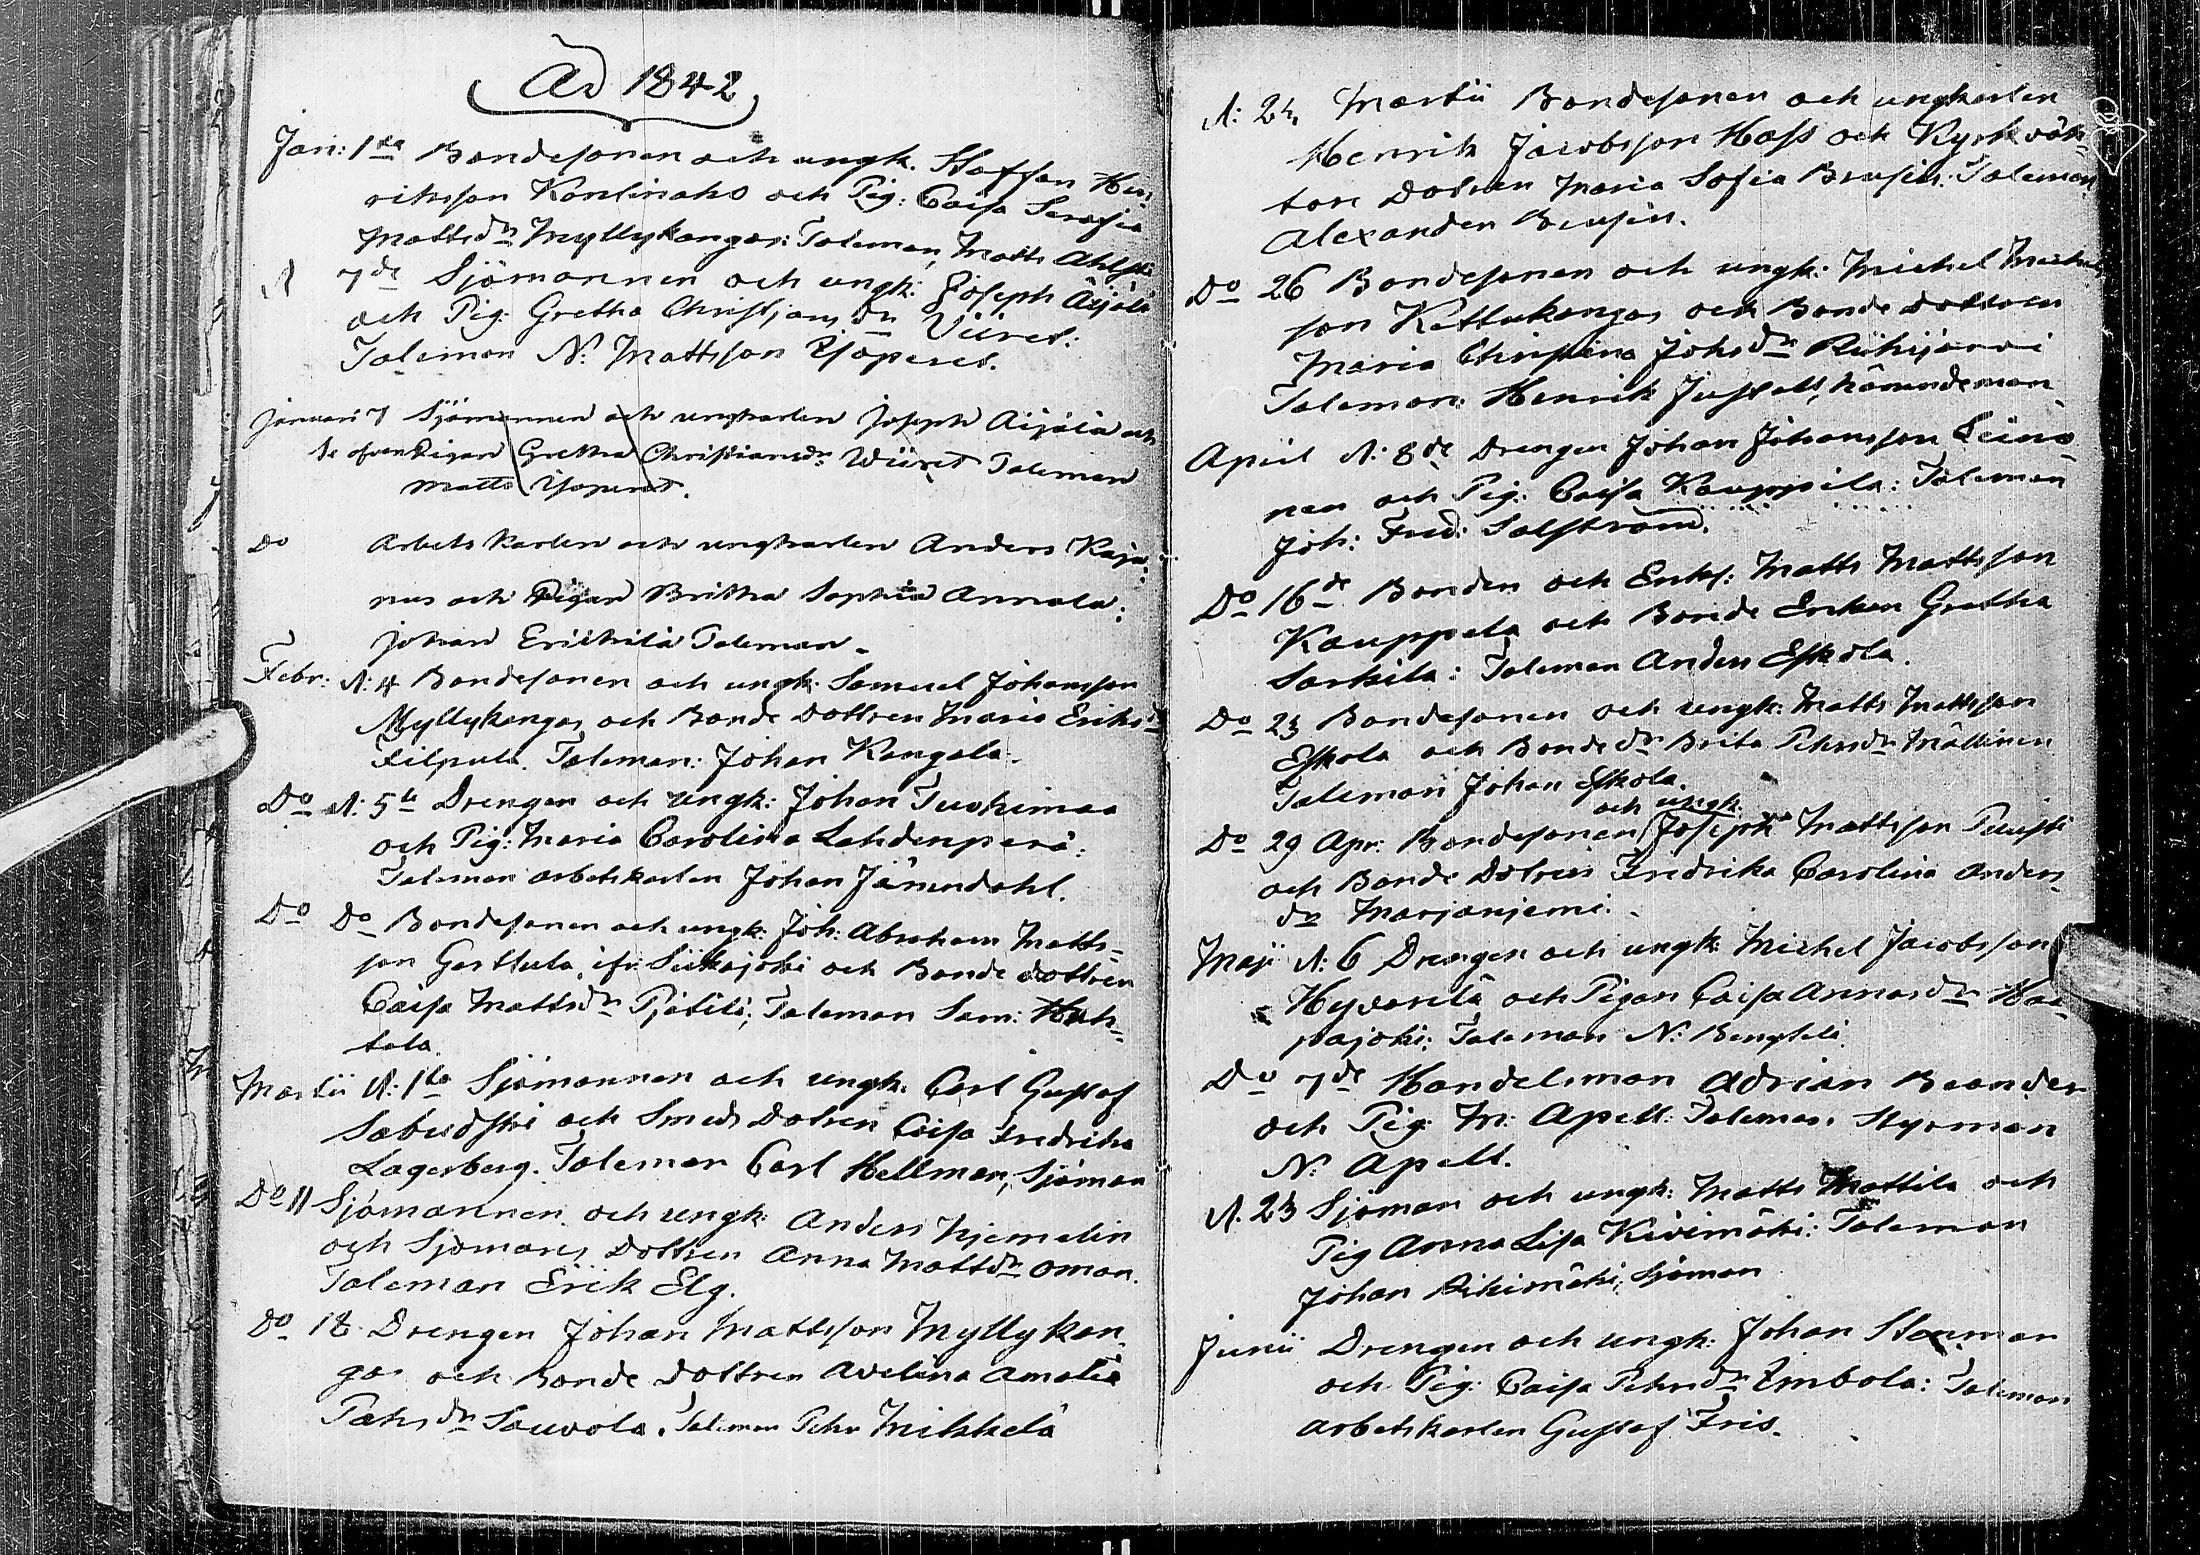 Ad 1842
Jan: 1sta Bondesonen och ungk. Staffan Hen
riksson Kontinaho och Pig: Caisa Serafia
Mattsdr Myllykangas: Taleman, Matts Ahlst
N 7de Sjömannen och ungk: Joseph Äijälä
och Pig: Gretha Christjansdr Viiret:
Taleman N: Mattsson Yöperet.
Januari 7 Sjömannen och ungkarlen Joseph Äijälä och
se ofvan Pigan Gretha Christiansdr Wiiret Taleman
Matts Yöperet.
Do Arbetskarlen och ungkarlen Anders Kaja
nus och Pigan Britha Sophia Annala:
Johan Erickilä Taleman.
Febr: N: 4 Bondesonen och ungk: Samuel Johansson
Myllykangas och Bonde Dottren Maria Eriksdr
Filpula. Taleman: Johan Kangala.
Do N: 5te Drengen och ungk: Johan Tuohimaa
och Pig: Maria Carolina Lehdenperä:
Taleman arbetskarlen Johan Järnndahl.
Do Do Bondesonen och ungk: Joh: Abraham Matts-
son Gerttula, ifr. Siikajoki och Bonde dottren
Caisa Mattsdr Pjätilä; Taleman Sam: Huh-
tala.
Martii N: 1sta Sjömannen och ungk. Carl Gustaf
Sabudski och Smeds Dotren Caisa Fredrika
Lagerberg. Taleman Carl Hellman, Sjöman
Do 11 Sjömannen och ungk: Anders Hjemelin
och Sjömans Dottren Anna Mattsdr Oman.
Taleman Erik Elg.
Do 18 Drengen Johan Mattsson Myllykan-
gas och Bonde Dottren Avelina Amalia
Pehrsdr Sauvola. Taleman Pehr Mikkelä
N: 24 Martii Bondesonen och ungkarlen
Henrik Jacobsson Hass och Kyrkväk-
tare Dotren Maria Sofia Brusin: Taleman
Alexander Brusin.
Do 26 Bondesonen och ungk: Michel Michels
son Kettukangas och Bonde Dottren
Maria Christina Johsdr Riihijärvi
Taleman: Henrik Jussels, Nämndeman
April N: 8de Drengen Johan Johansson Leino-
nen och Pig: Caisa Kauppila: Taleman
Joh: Fred: Salström.
Do 16de Bonden och Enkl: Matts Mattsson
Kauppela och Bonde Enkan Gretha
Sarkila: Taleman Anders Eskola.
Do 23 Bondesonen och ungk: Matts Mattsson
Eskola och Bondedr Brita Pehrsdr Mällinen
Taleman Johan Eskola.
och ungk.
Do 29 Apr: Bondesonen Joseph Mattsson Tuusti
och Bonde Dotren Fredrika Carolina Anders
dr Marjaniemi.
Maji N: 6 Drengen och ungk: Michel Jacobsson
Hyvärilä och Pigan Caisa Annasdr Haa-
pajoki; Taleman N: Bengteli
Do 7de Handelsman Adrian Brander
och Pig: M: Apell: Taleman, Styrman
N: Apell.
N: 23 Sjöman och ungk: Matts Mattila och
Pig Anna Lisa Kivimäki: Taleman
Johan Rikimäki, Sjöman
Junii Drengen och ungk: Johan Stenman
och Pig: Caisa Pehrsdr Embola: Taleman
Arbetskarlen Gustaf Fris.